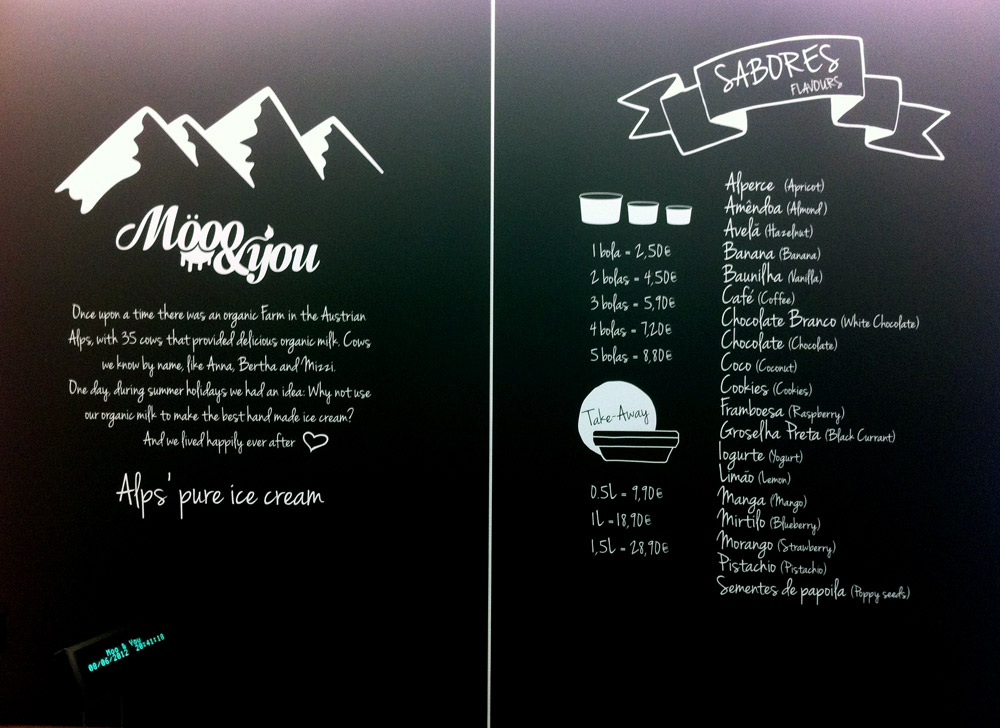 Möoo
&you
Once upon a time there was an organic Farm in the Austrian
Alps, with 35 cows that provided delicious organic milk. Cows
we know by name, like Anna, Bertha and Mizzi.
One day, during summer holidays we had an idea: Why not use
our organic milk to make the best hand made ice cream?
And we lived happily ever after
Alps' pure ice cream
Moo & You
08/06/2012 20:41:18
SABORES
FLAVOURS
1 bola = 2,50€
2 bolas = 4,50€
3 bolas = 5,90€
4 bolas = 7,20€
5 bolas = 8,80€
Take-Away
0.5L = 9,90€
1L = 18,90€
1,5L = 28,90€
Alperce (Apricot)
Amêndoa (Almond)
Avelã (Hazelnut)
Banana (Banana)
Baunilha (Vanilla)
Café (Coffee)
Chocolate Branco (White Chocolate)
Chocolate (Chocolate)
Coco (Coconut)
Cookies (Cookies)
Framboesa (Raspberry)
Groselha Preta (Black Currant)
Iogurte (Yogurt)
Limão (Lemon)
Manga (Mango)
Mirtilo (Blueberry)
Morango (Strawberry)
Pistachio (Pistachio)
Sementes de papoila (Poppy seeds)